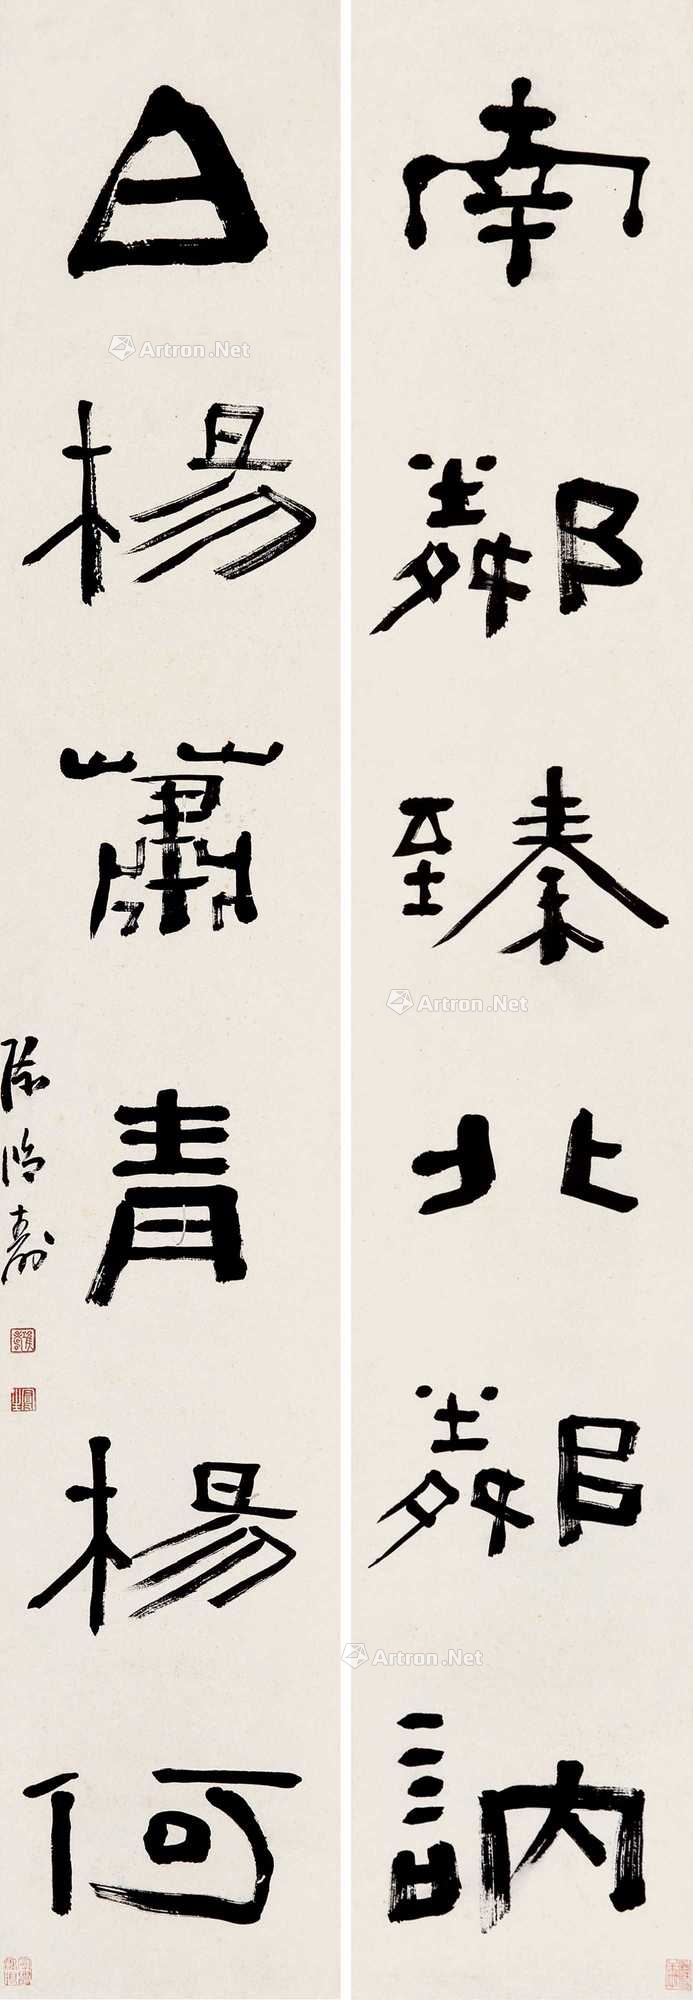 南鄰臻北鄰訥
白楊蕭青楊何
陳鴻壽
Artron.Net
Artron.Net
Artron.Net